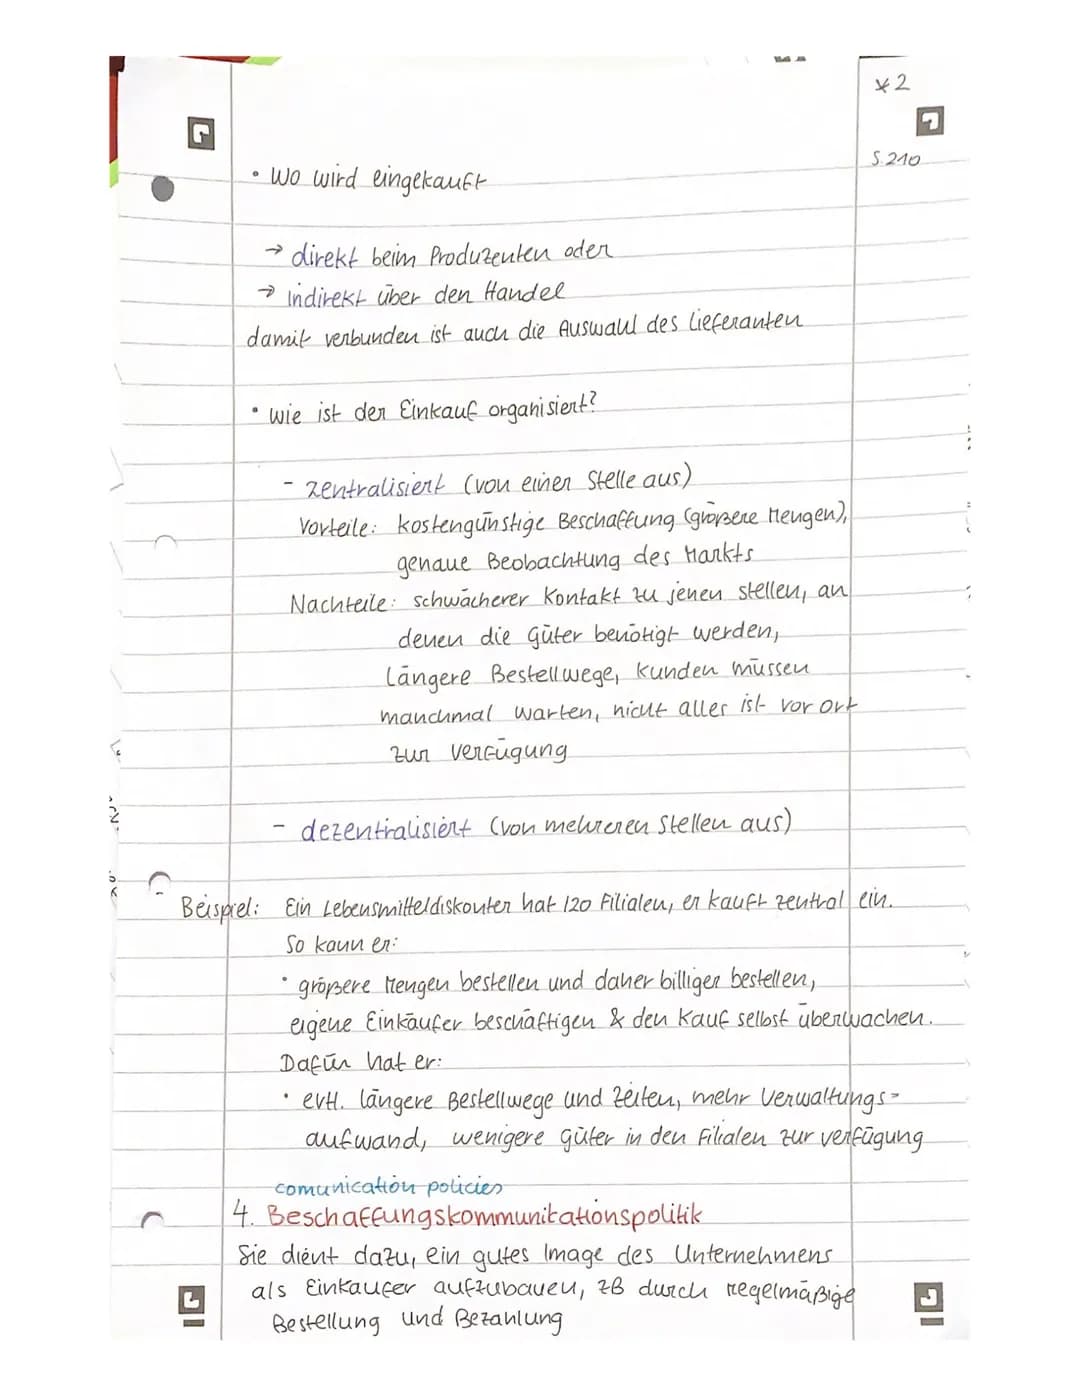 *2
S.210
• Wo wird eingekauft
→ direkt beim Produzenten oder
→ indirekt über den Handel
damit verbunden ist auch die Auswahl des Lieferanten
• wie ist der Einkauf organisiert?
- zentralisiert (von einer Stelle aus)
Vorteile: kostengünstige Beschaffung (größere Mengen),
genaue Beobachtung des Markts
Nachteile: schwächerer Kontakt zu jenen stellen, an
denen die Güter benötigt werden,
Längere Bestellwege, Kunden müssen
manchmal warten, nicht alles ist vor Ort
zur Verfügung
- dezentralisiert (von mehreren Stellen aus)
Beispiel: Ein Lebensmitteldiskonter hat 120 Filialen, er kauft zentral ein.
So kann er:
• größere Mengen bestellen und daher billiger bestellen,
eigene Einkäufer beschäftigen & den Kauf selbst überwachen.
Dafür hat er:
• evtl. längere Bestellwege und Zeiten, mehr Verwaltungs-
aufwand, wenigere Güter in den Filialen zur verfügung
comunication policies
4. Beschaffungskommunikationspolitik
Sie dient dazu, ein gutes Image des Unternehmens
als Einkäufer aufzubauen, zB durch regelmäßige
Bestellung und Bezahlung